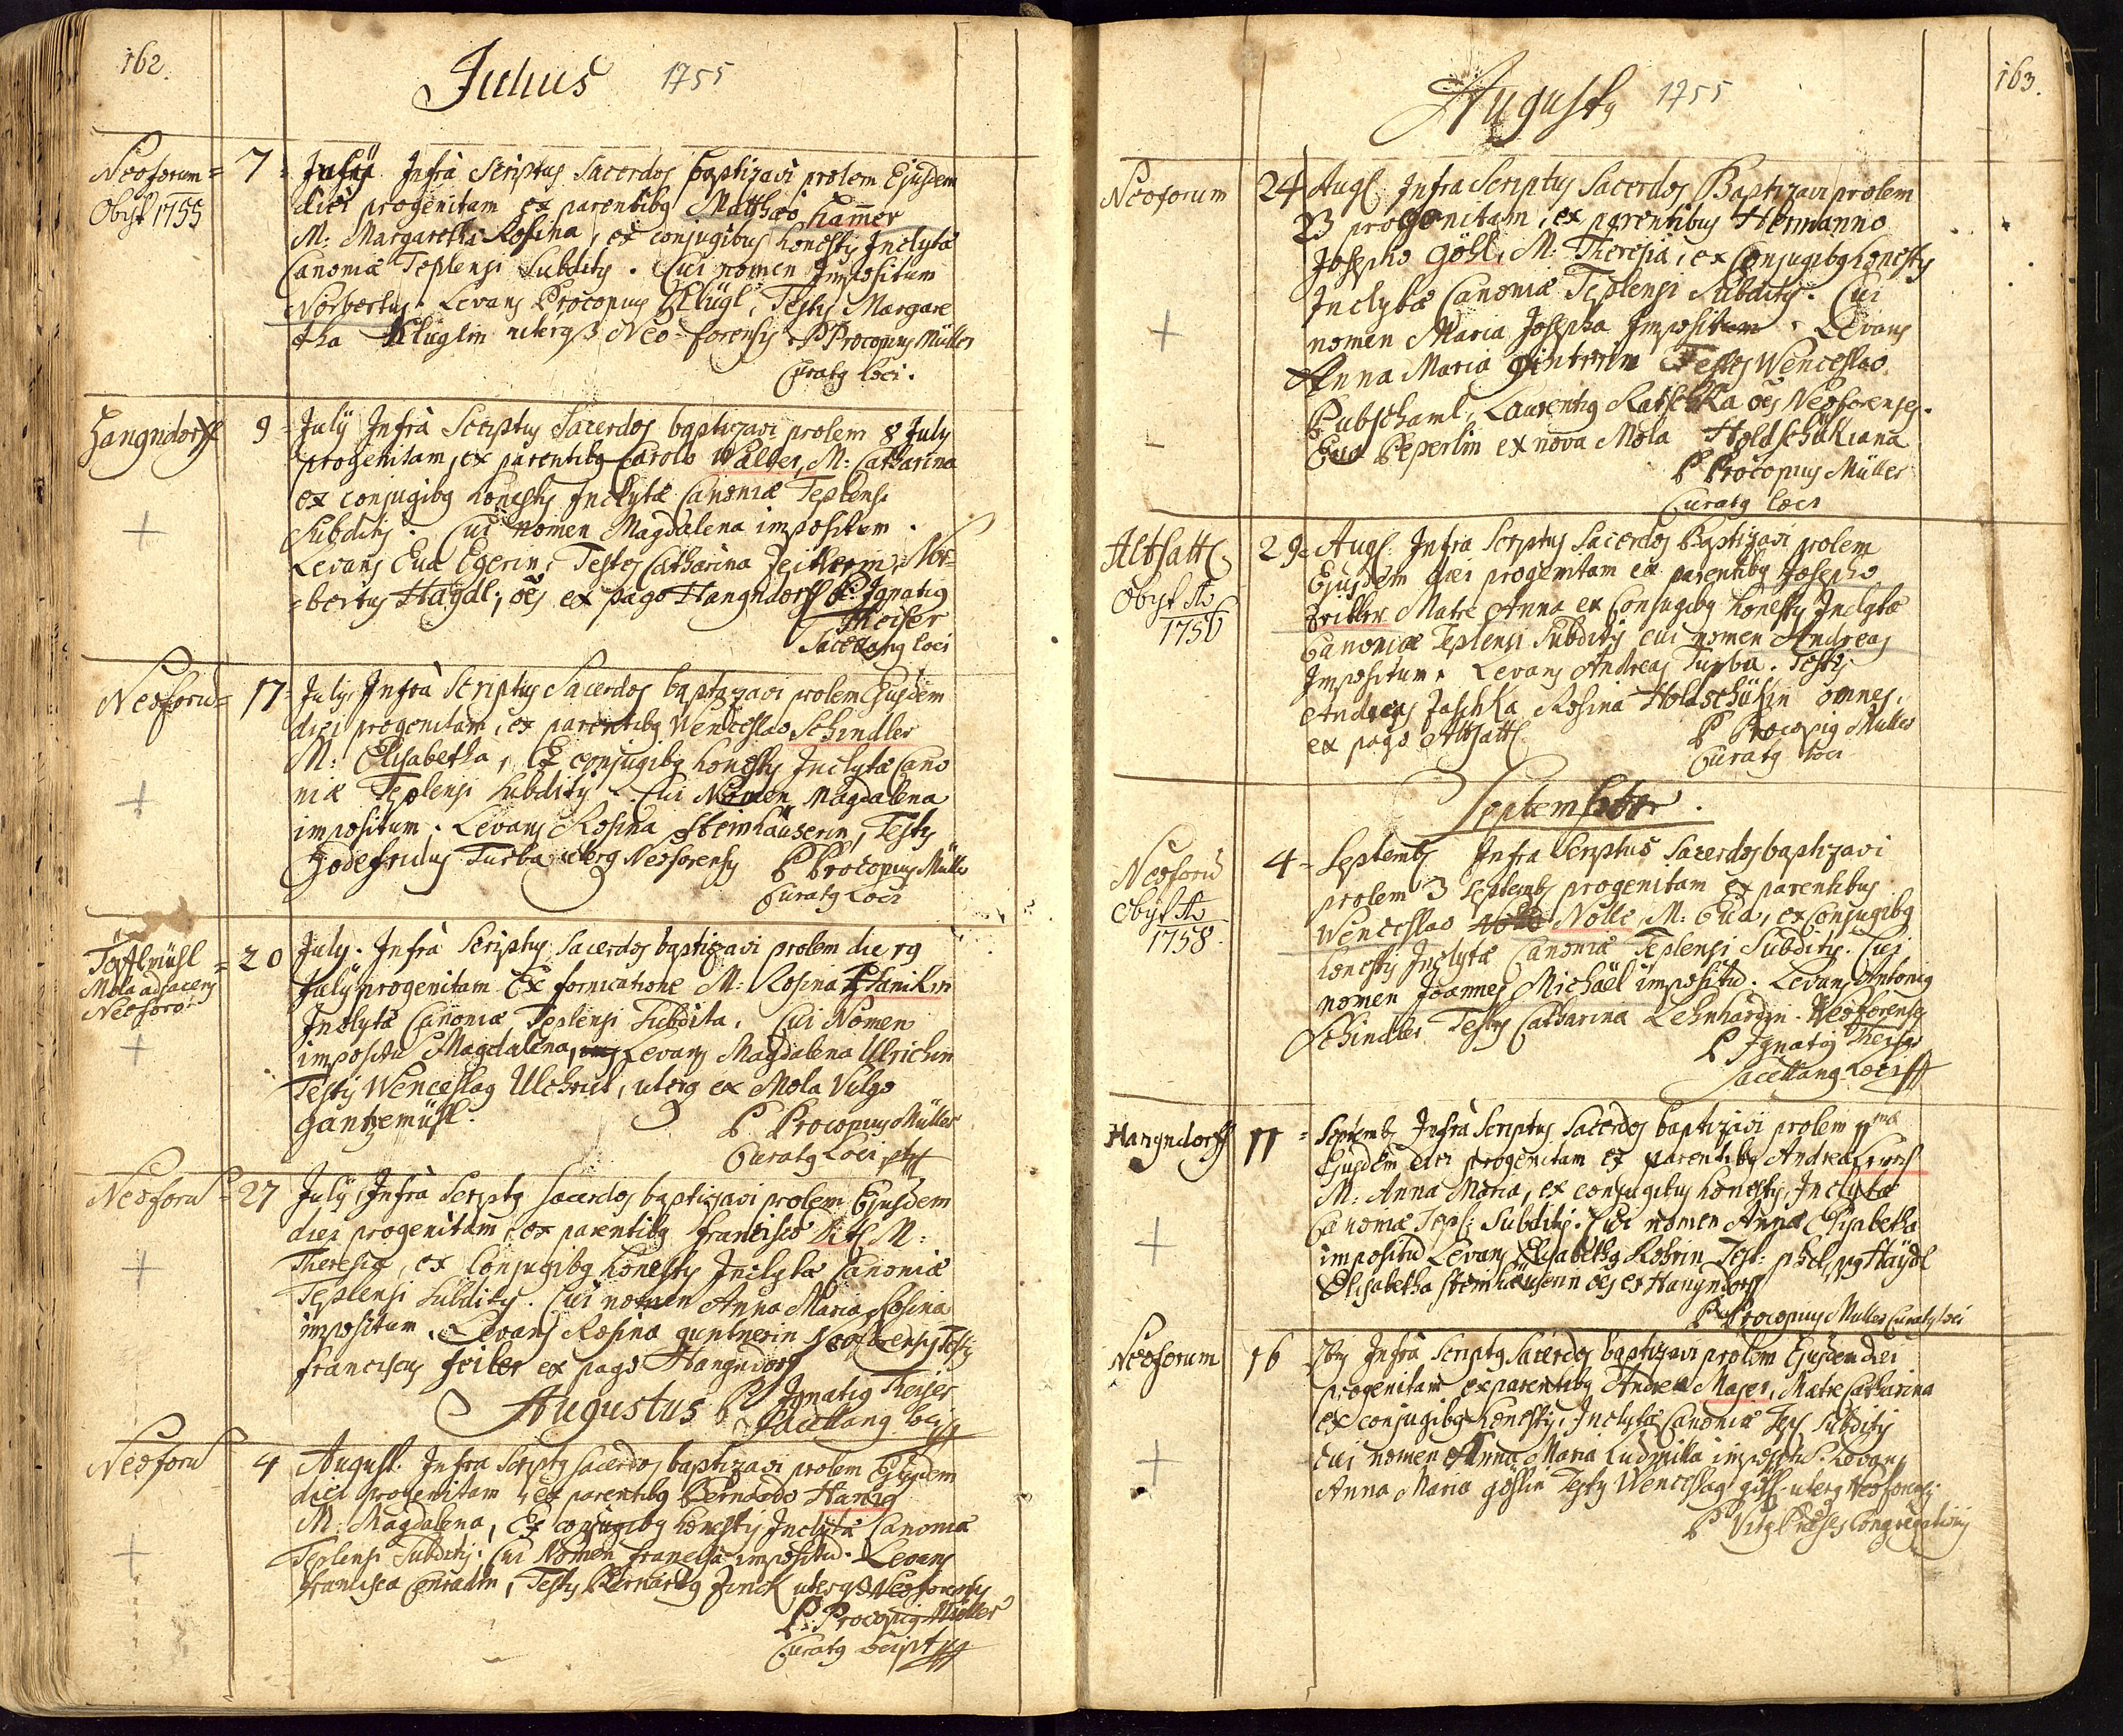 162.
Julius 1755
Neoforum = 7 = July Infrà Scriptus Sacerdos baptizavi prolem Ejusdem
Obyt 1755
diei progenitam ex parentibg Matthæo Ham̄er
M: Margaretha Rosina, ex conjugibus honestis Inclytæ
Canoniæ Teplensi Subditis. Cui nomen Impositum
Norbertus. Levans Procopius Klügl, Testis Margare
tha Kluglin uterq3 Neo-forensis. P Procopius Müller
Curatg loci.
Hangndorff 9 = July Infrà Scriptus Sacerdos baptizavi prolem 8 July
progenitam, ex parentibg Carolo Walter, M: Catharina
ex conjugibg honestis Inclytæ Canoniæ Teplensi
Subditis. Cui nomen Magdalena impositum.
Levans Eva Egerin, Testes Catharina Zeitlerin, Nor=
=bertus Haÿdl; oēs ex pago Hangndorff P: Ignatig
Theiser
Sacellang loci
Neoforū = 17 = July Infrà Scriptus Sacerdos baptizavi prolem Ejusdem
diei progenitam, ex parentibg Wenceslao Schindler
M: Elisabetha, Ex conjugibg honestis Inclytæ Cano
niæ Teplensi Subditis. Cui Nomen Magdalena
impositum. Levans Rosina Steinhäuserin, Testis
Godefridus Turba uterg Neoforensis P Procopius Müller
Curatg Loci
Mola adjacens
Neoforo
= 20 July. Infrà Scriptus Sacerdos baptizavi prolem die 19
July progenitam Ex fornicatione M: Rosina
Inclytæ Canoniæ Teplensi Subdita. Cui Nomen
impositū Magdalena, Levans Magdalena Ulrichin
Testis Wenceslag Ulchrich, uterg ex Mola Vulgo
gantzemühl.
P Procopius Müller
Curatg Loci
Neoforū = 27 July Infrà Scriptg Sacerdos baptizavi prolem Ejusdem
diei progenitam, ex parentibg francisco M:
Theresia, ex Conjugibg honestis Inclytæ Canoniæ
Teplensi Subditis. Cui nomen Anna Maria Rosina
impositum. Levans Rosina guntnerin Neoforensis Testis
franciscus Zeitler ex pago Hangndorff
P Ignatig Theiser
Sacellang loci
Augustus
Neoforū 4 August. Infra Scriptg Sacerdos baptizavi prolem Ejusdem
diei progenitam, ex parentibg Bernardo Hanig
M: Magdalena, Ex conjugibg honestis Inclytæ Canoniæ
Teplensi Subditis. Cui Nomen francisca impositū. Levans
francisca Conradin, Testis Bernardg Jinck uterq3 Neoforensis
P: Procopig Müller
Curatg loci
163.
Augusty 1755
Neoforum 24 Augs. Infra Scriptus Sacerdos Baptizavi prolem
23 progenitam, ex parentibus Hermanno
Josepho Göhl, M: Theresia, ex Conjugibg honestis
Inclytæ Canoniæ Teplensi Subditis. Cui
nomen Maria Josepha Impositum. Levans
Anna Maria Testes Wenceslao
Pubschaml, Laurentig Ratschka oēs Neoforenses.
Eva Peperlin ex nova Mola Holdschükiana
P Procopius Müller
Curatg loci
Altsattl 29 = Augs. Infra Scriptus Sacerdos Baptizavi prolem
Obyt Ao
1756
Ejusdem diei progenitam ex parentibg Josepho
Zeitler Matre Anna ex Conjugibg honestis Inclytæ
Canoniæ Teplensi Subditis cui nomen Andreas
Impositum. Levans Andreas Turba. Testis
Andreas Jaschka Rosina Holdschükin omnes
ex pago Altsattl
P Procopig Müller
Curatg loci
September.
Neoforū 4 = Septembs Infra Scriptus Sacerdos baptizavi
Obyt Ao
1758.
prolem 3 Septembs progenitam ex parentibus
Wenceslao Nolle, M: Eva, ex Conjugibg
honestis Inclytæ Canoniæ Teplensi Subditis. Cui
nomen Joannes Michaël impositū. Levans Antonig
Schindler Testis Catharina Lehnhardin. Neoforenses
P Ignatig Theiser
Sacellang Loci
Hangndorff 11 = Septembs Infrà Scriptus Sacerdos baptizavi prolem 11ma
Ejusdem diei progenitam ex parentibg Andrea
M: Anna Maria, ex conjugibus honestis, Inclytæ
Canoniæ Tepls Subditis. Cui nomen Anna Elisabetha
impositū Levans Elisabetha Rohrin Test: philippg Haÿdl
Elisabetha Steinhäuserin oēs ex Hangndorff
P Procopius Müller Curatg loci
Neoforum 16 7bris Infrà Scriptg Sacerdos baptizavi prolem Ejusdem diei
progenitam ex parentibg Andrea Majer, Matre Catharina
ex conjugibg honestis, Inclytæ Canoniæ Tep Subditis
Cui nomen Anna Maria Ludmilla impositū. Levans
Anna Maria göhlin Testis Wenceslag göhl uterg Neoforensis
P Vitg Præses Congregationis